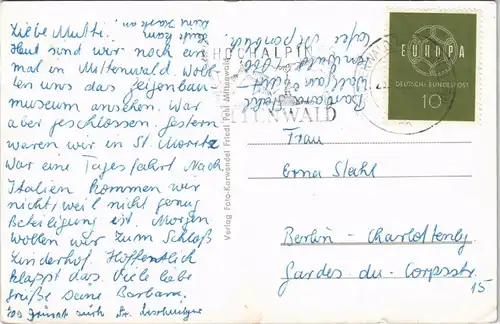 Liebe Mutti!
Heut sind wir noch ein
mal in Mittenwald. Woll
ten uns das Geigenbau-
museum ansehen. War
aber geschlossen. Gestern
waren wir in St. Moritz
War eine Tagesfahrt Nach
Italien kommen wir
nicht, weil nicht genug
Beteiligung ist. Morgen
wollen wir zum Schloß
Linderhof. Hoffentlich
klappt das. Viele liebe
grüße Deine Barbara.
HOCHALPIN
MITTENWALD
Verlag Foto-Karwendel Friedl Pehl Mittenwald
EUROPA
DEUTSCHE BUNDESPOST
10
Frau
Erna Stahl
Berlin-Charlottenbg
Gardes-du-Corpsstr.
15